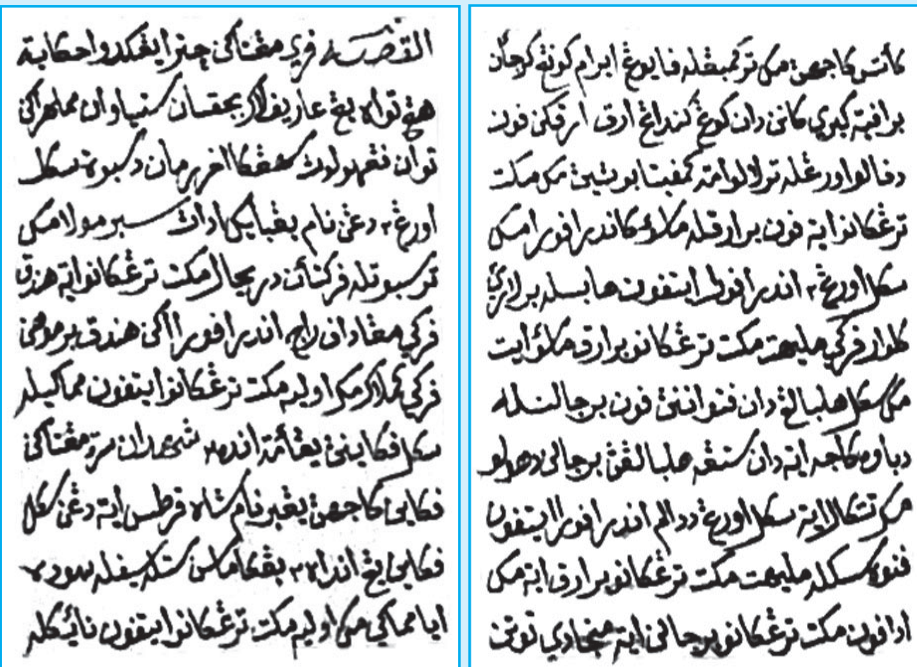 القصه فري مڠتاكن چترا يڠكدوا حكاية
توان يڠ عارف لاݢ بجقسان ستياوان مملهراكن
توان فڠهولوث دسبوة سكل
اورڠ۲ دڠن نام يڠباىك اداث سبرمولا مك
ترسبوتله فركتأن درفحال مكت ترڠكانو ايت هندق
فركي مڠادف راج اندرافورا اكن هندق برموهن
فركي كملاك مك اوليه مكت ترڠكانو ايتفون مماكيله
سكل فكاينڽ يڠأمة انده۲ شهدان سرت مڠناكن
فكاين كاجهڽ يڠبرنام شاه قرطس ايت دڠن سكل
فكاين يڠ انده۲ يڠكامسن ستله سيفله سوده
اي مماكي مك اوليه مكت ترڠكانو ايتفون نائيكله
كأتس كاجهڽ مك تركمبڠله فايوڠ ايرام كونيڠ كرجأن
براڤيت كيري كانن دان كوڠ كندڠ ارق ارقكن فون
دفالو اورڠله ترلالو رامي كمفيتا بوڽيڽ مك مكت
ترڠكانو ايت فون برارقله ملالوءي كاندرافورا مك
سكل اورڠ۲ اندرافورا ايتفون هابسله برلاري
كلوار فركي مليهت مكت ترڠكانو برارق ملالوءي ايت
مك سكل هلبالڠ دان فڠاوينڽ فون برجالنله
دباوه كاجه ايت دان ستڠه هلبالڠڽ برجالن دهولو
مك تتكالا ايت سكل اورڠ ددالم اندرافورا ايتفون
فنوه سسقله مليهت مكت ترڠكانو برارق ايت مك
ادافون مكت ترڠكانو برجالن ايت منجادي تونتن